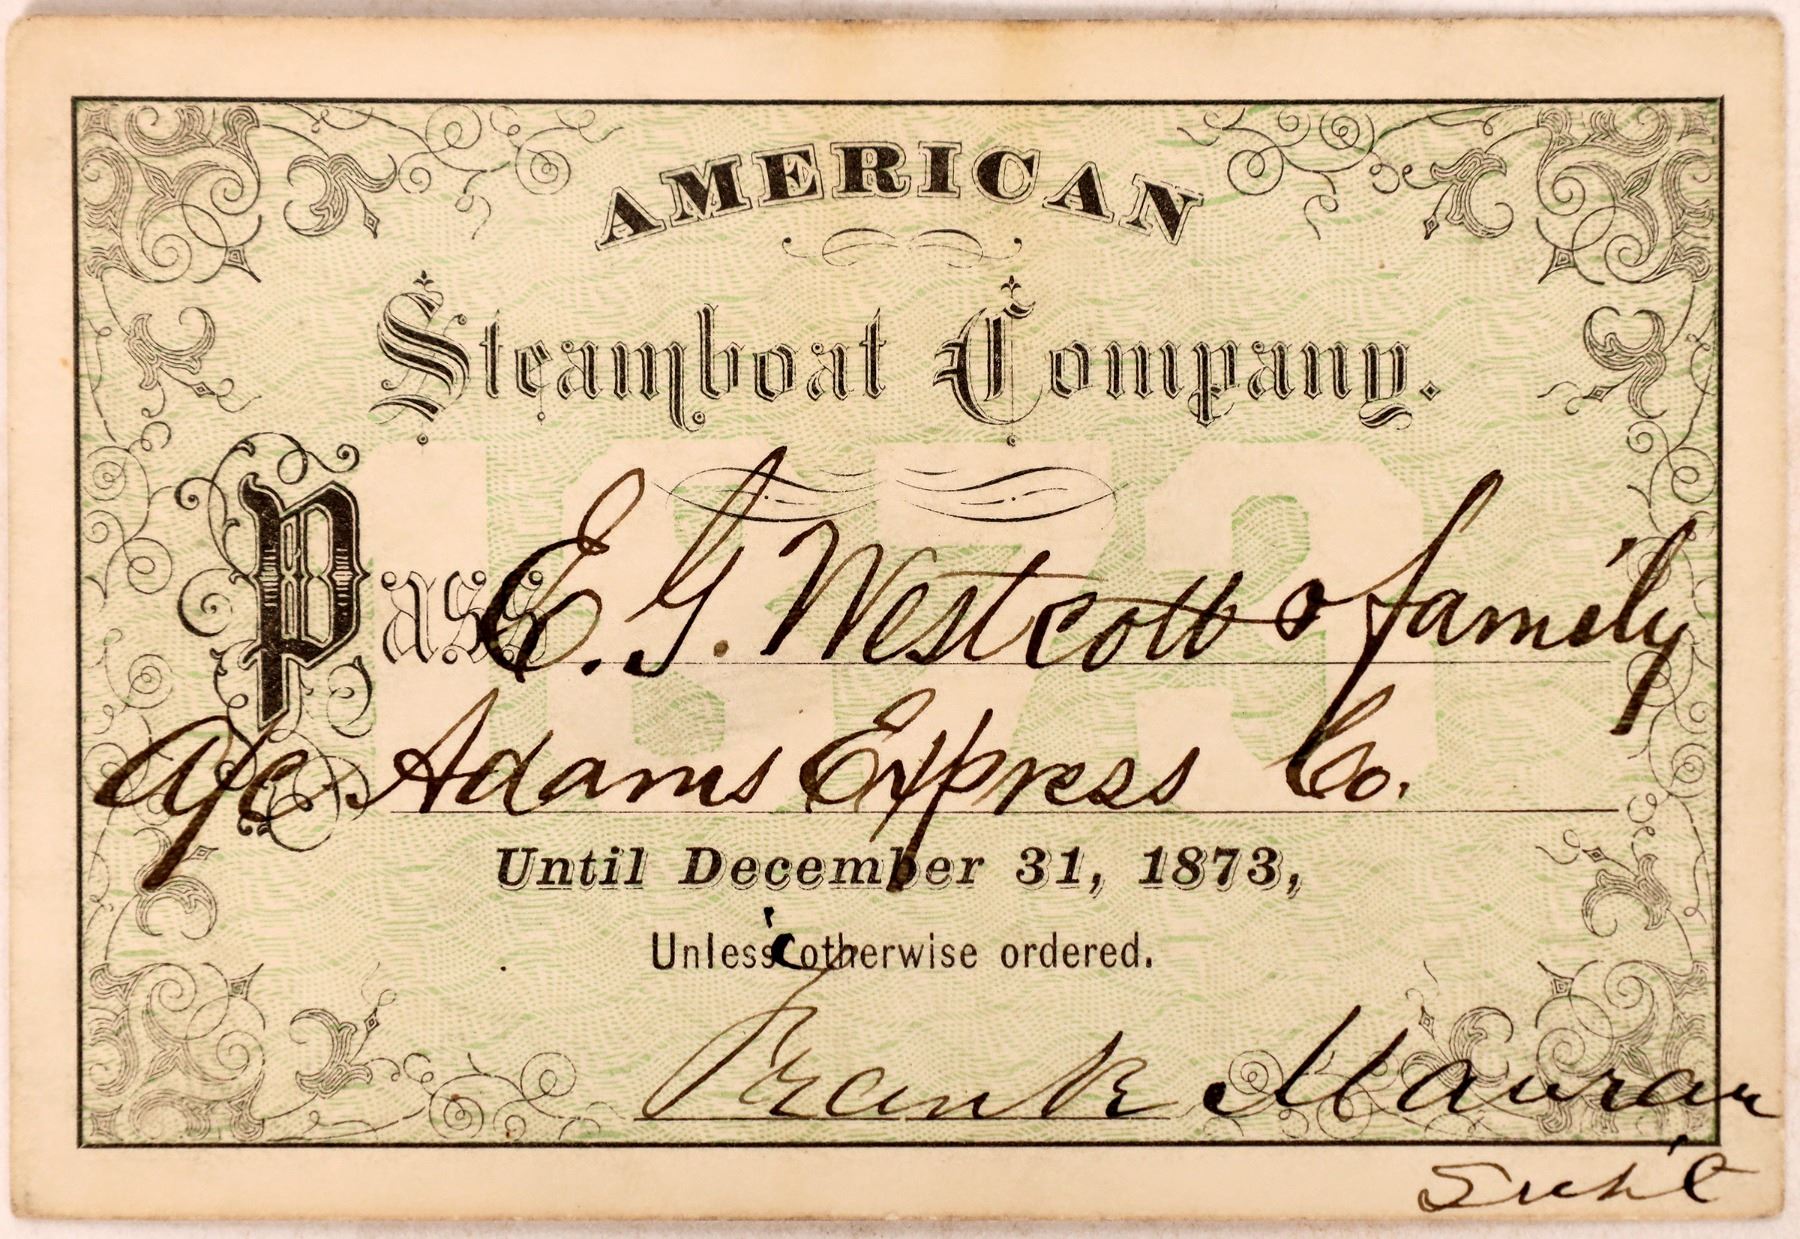 AMERICAN
Steamboat Company.
1873
Pass E. G. Westcott & family
a/c Adams Express Co.
Until December 31, 1873,
Unless otherwise ordered.
Frank Mauran